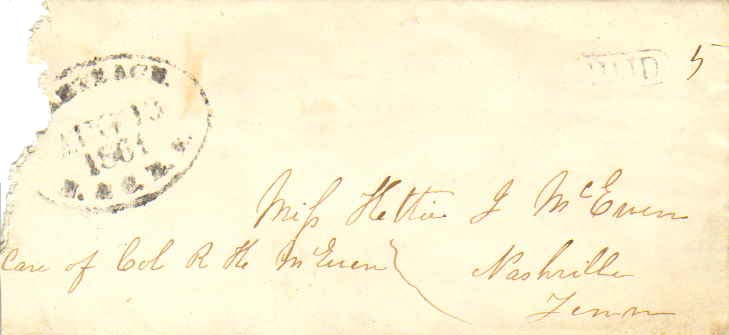 1861
PAID 5
Miss Hettie J McEwen
Care of Col R H McEwen
Nashville
Tenn